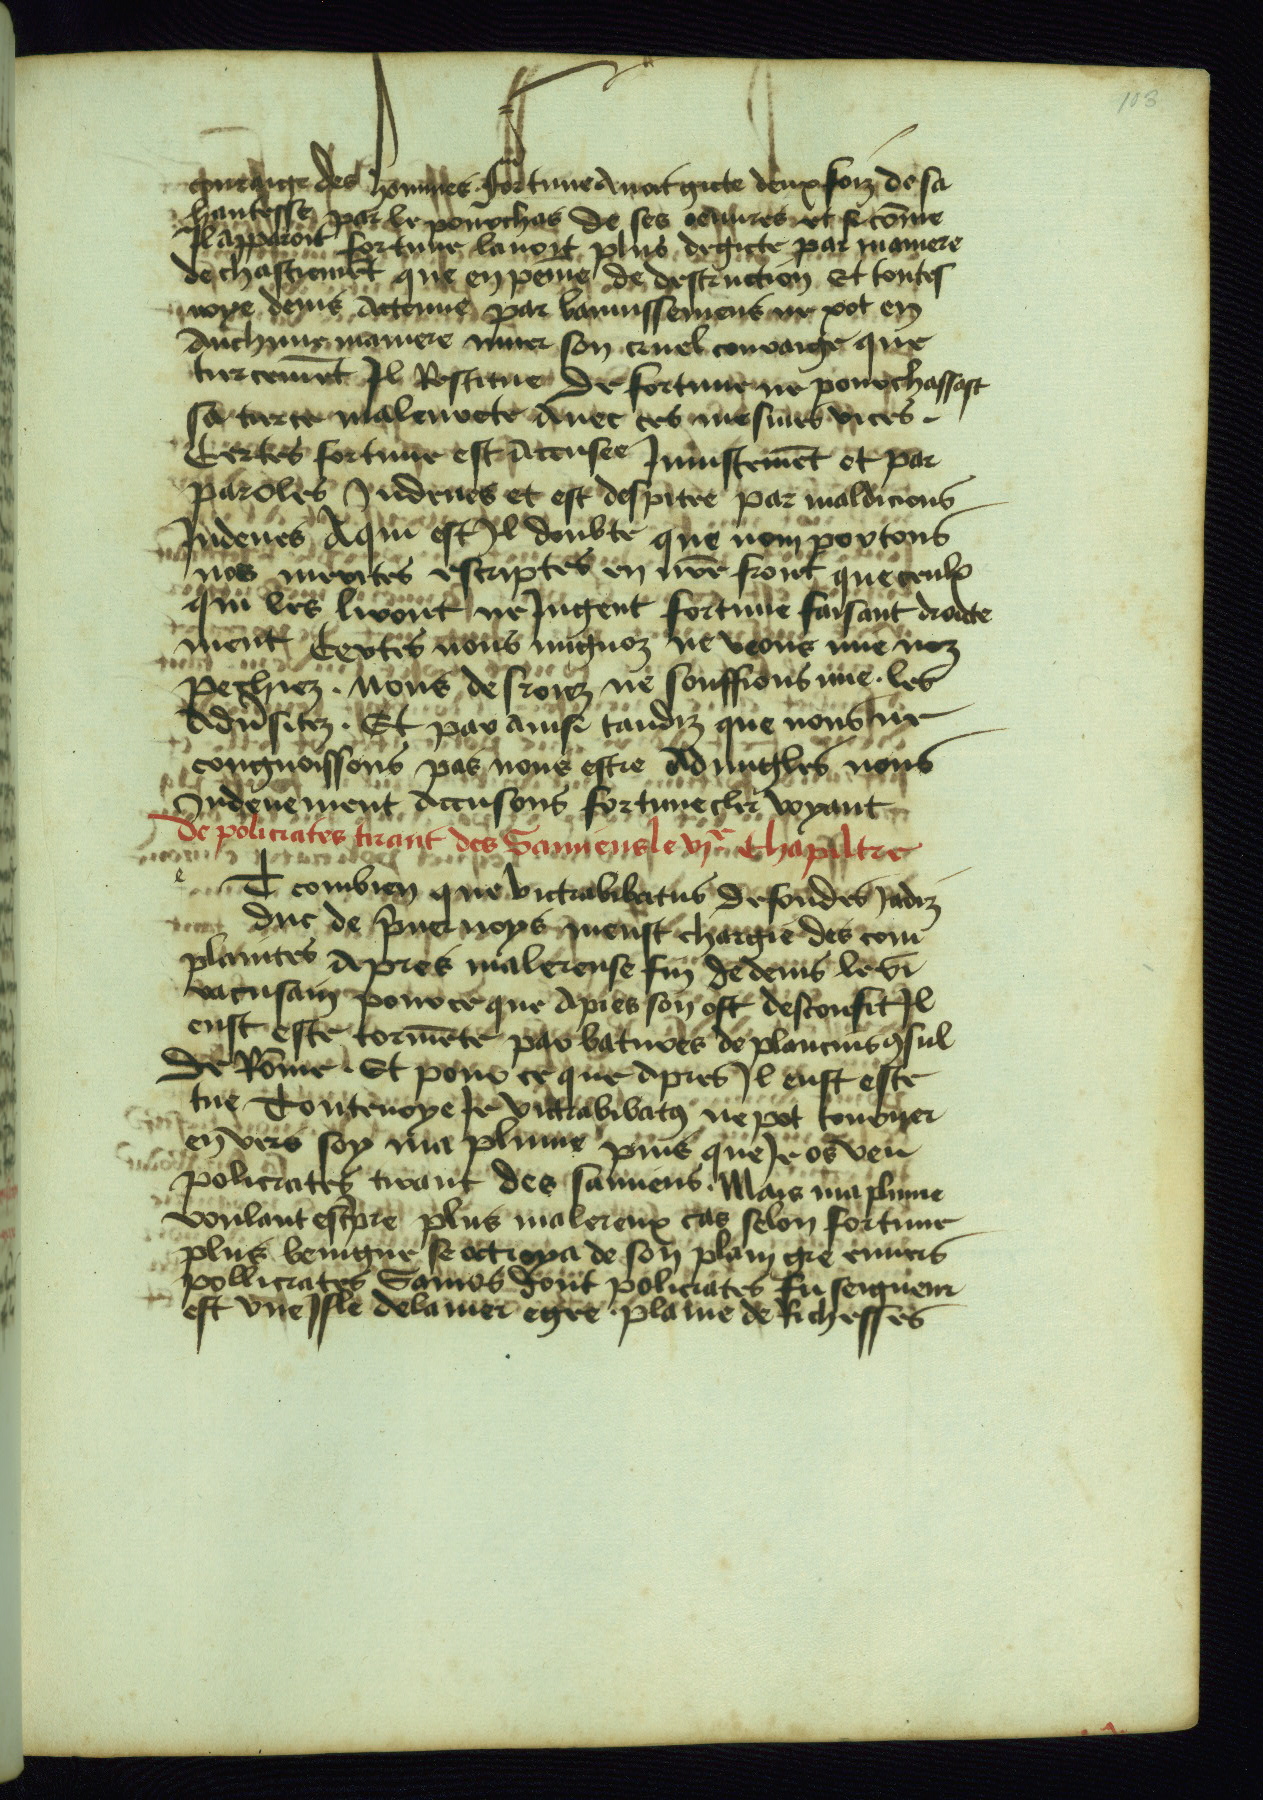 103
couraige des hommes. fortune Avoit gicte deux foiz de sa
haultesse par le pourchas de ses oeuures et si cōme
Il apparoit fortune lavoit plus degicte par maniere
de chastiemēt que en peine de destruction Et toutes
voye denis Actenue par bannissemens ne pot en
Auchune maniere muer son cruel couraige que
tiercemēt Il Restitue De fortune ne pourchassast
sa tierce maleurete Avec ces mesmes vices.
Certes fortune est Accusee Iniustemēt et par
paroles Indeues et est despitee par maldicions
Indeues A qui est Il doubte que nom portons
nos merites escriptes en nr̄e front que ceulx
qui les liront ne Iugent fortune faisant droicte
ment Certes nous mignoz ne veons mie noz
pechiez. nous desroiez ne souffrons mie. les
Adūsitez. Et par ainsi tandiz que nous ne
congnoissons pas nous estre Adveugles nous
Indeuement Accusons fortune cler voyant
De policrates tirant des Samiens le vjᵉ Chapiltre
e
T combien que Vitrabibatus de fondes Jadiz
duc de p̄uernoys meust chargie des com
plaintes Apres malereuse fin de denis le si
racusain pour ce que Apres son ost desconfit Il
eust este tormēte par batures de plancius ꝯsul
De Rōme. Et pour ce que Apres Il eust este
tue Toutevoye Ie Vitrabibatꝰ ne pot tourner
en vers soy ma plume puis que Ie os veu
policrates tirant des samiens. Mais ma plume
voulant escp̄re plus malereux cas selon fortune
plus benigne se octroya de son plain gre envers
pollicrates Samos dont policrates fu seigneur
est vne Isle de la mer egee. plaine de Richesses